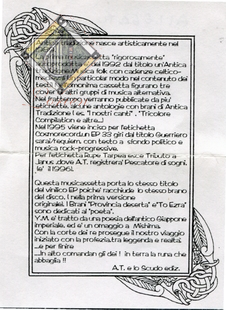 nasce artisticamente nel
"rigorosamente"
1992 dal titolo un'Antica
musica folk con cadenze celtico-
particolar modo nel contenuto dei
omonima cassetta figurano tre
cover di altri gruppi di musica alternativa.
Nel frattempo verranno pubblicate da piu'
etichette, alcune antologie con brani di Antica
Tradizione ( es. "I nostri canti" , "Tricolore
Compilation e altre...)
Nel 1995 viene inciso per l'etichetta
un EP 33 giri dal titolo Guerriero
sarai/requiem. con testo a sfondo politico e
musica rock-progressive.
Per l'etichetta Rupe Tarpea esce Tributo a
Janus ,dove A.T. registrera' Pescatore di sogni.
( e' il 1996).
Questa musicassetta porta lo stesso titolo
del vinilico EP poiche' racchiude lo stesso brano
del disco. I nella prima versione
originale. I Brani "Provincia deserta" e "To Ezra"
sono dedicati al "poeta".
Y.M. e' tratto da una poesia dell'antico Giappone
imperiale, ed e' un omaggio a Mishima.
Con la corte dei re prosegue il nostro viaggio
iniziato con la profezia,tra leggenda e realta'.
...e per finire
...In alto comandan gli dei ! in terra la runa che
abbaglia !!
A.T. e lo Scudo ediz.